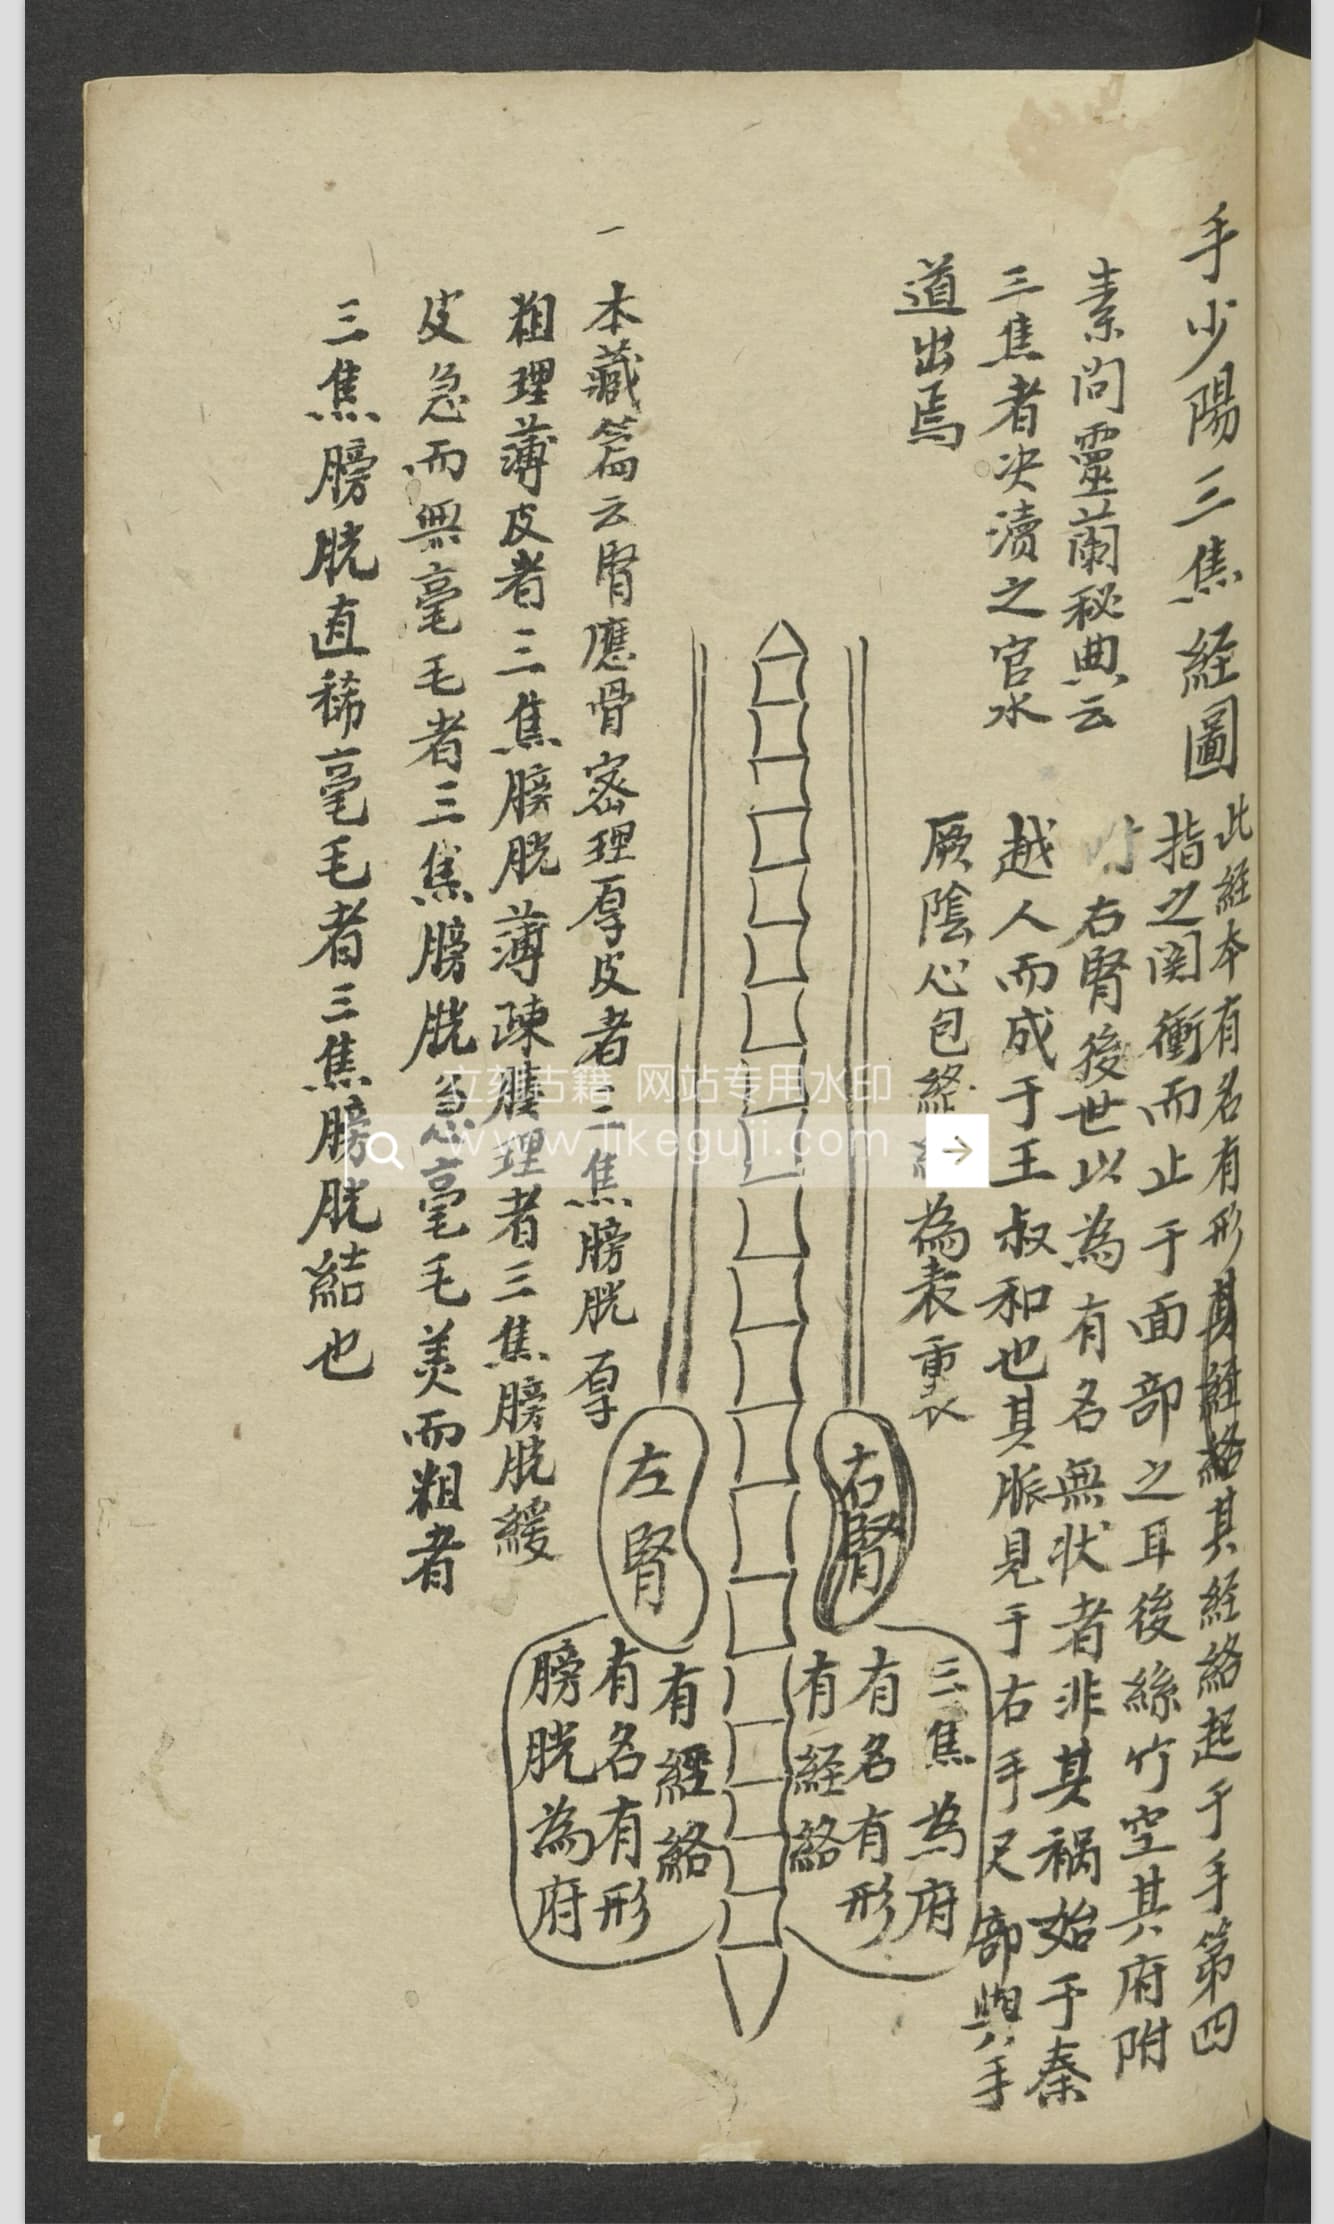 手少陽三焦経圖
此経本有名有形其経絡其経絡起于手第四
指之関衝而止于面部之耳後絲竹空其府附
附右腎後世以為有名無状者非其禍始于秦
越人而成于王叔和也其脈見于右手尺部與手
厥陰心包絡 為表裏
素問靈蘭秘典云
三焦者决瀆之官水
道出焉
右腎
三焦為府
有名有形
有経絡
左腎
有經絡
有名有形
膀胱為府
一
本藏篇云腎應骨密理厚皮者三焦膀胱厚
粗理薄皮者三焦膀胱薄疎腠理者三焦膀胱緩
皮急而無毫毛者三焦膀胱急毫毛美而粗者
三焦膀胱直稀毫毛者三焦膀胱結也
立刻古籍 网站专用水印
www.likeguji.com